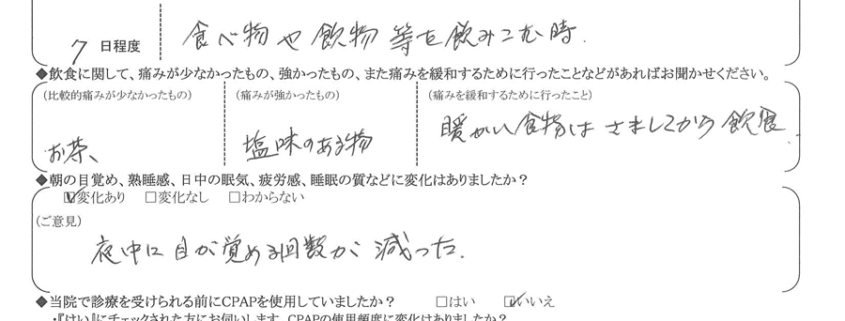 7 日程度 食べ物や飲物等を飲みこむ時.
◆飲食に関して、痛みが少なかったもの、強かったもの、また痛みを緩和するために行ったことなどがあればお聞かせください。
(比較的痛みが少なかったもの) (痛みが強かったもの) (痛みを緩和するために行ったこと)
お茶、 塩味のある物 暖かい食物はさましてから飲食.
◆朝の目覚め、熟睡感、日中の眠気、疲労感、睡眠の質などに変化はありましたか？
☑変化あり □変化なし □わからない
(ご意見)
夜中に目が覚める回数が減った.
◆当院で診療を受けられる前にCPAPを使用していましたか？ □はい ☑いいえ
・『はい』にチェックされた方にお伺いします。CPAPの使用頻度に変化はありましたか？